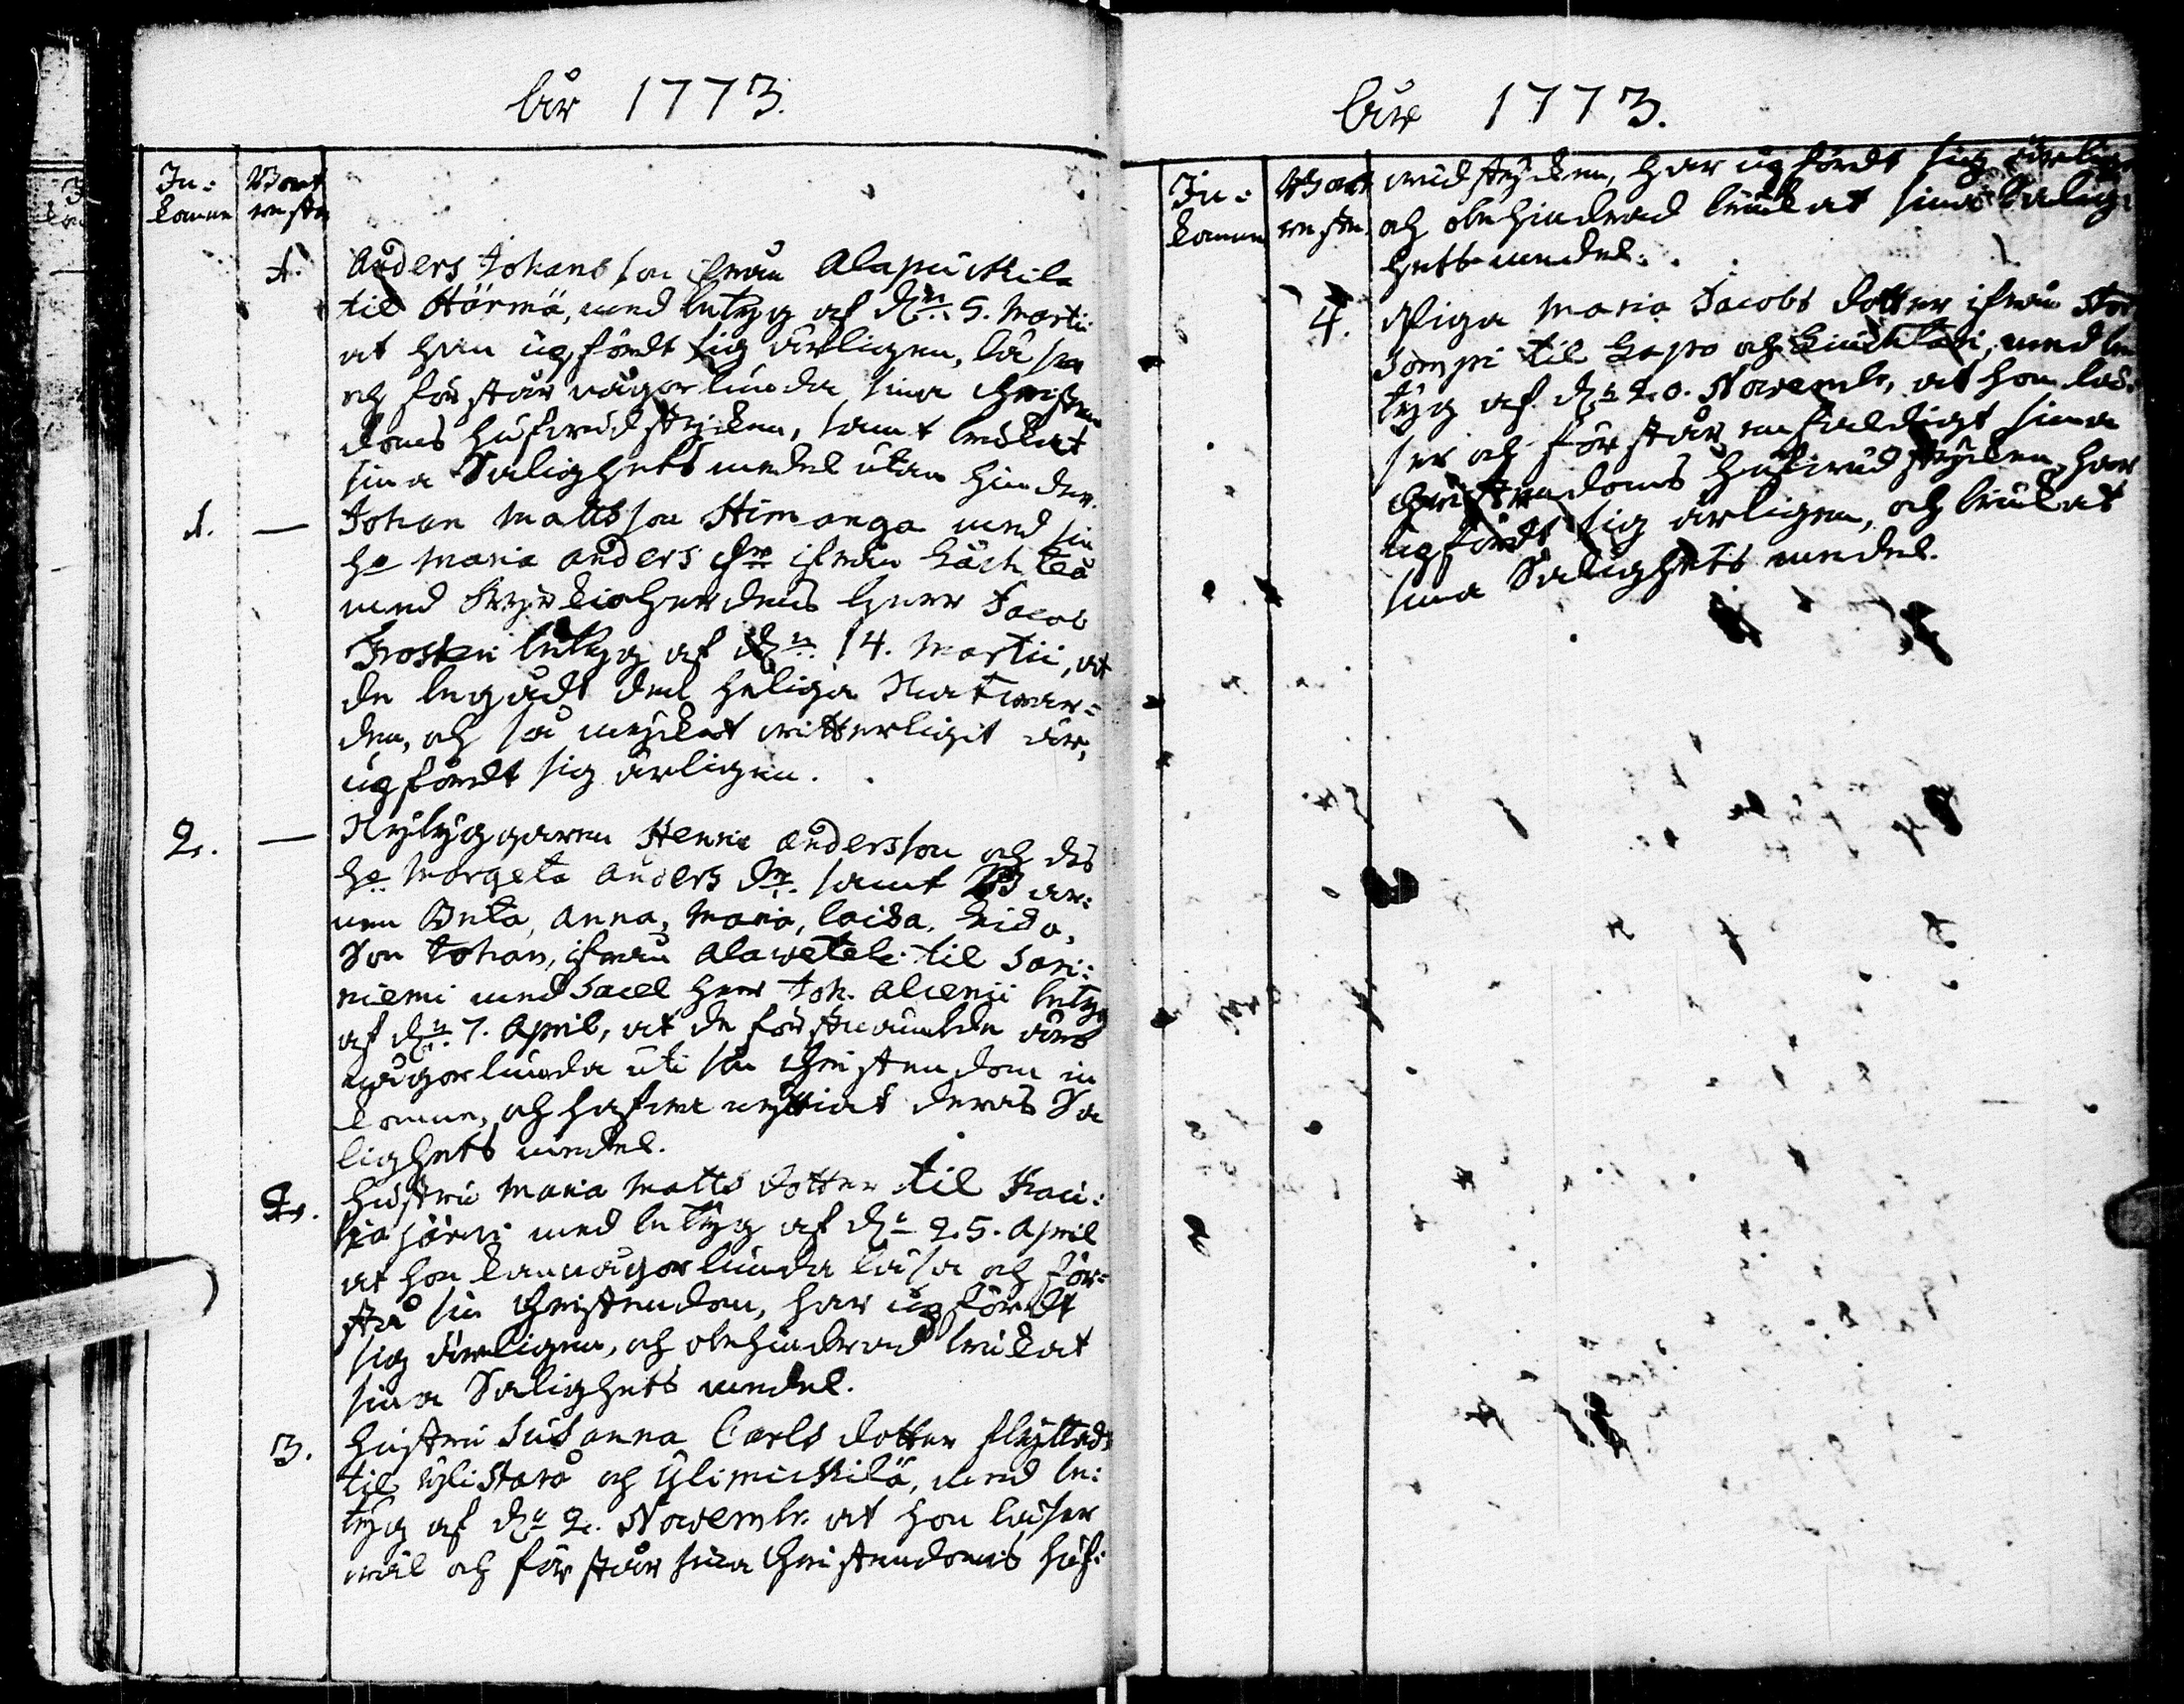 år 1773.
In:
komne
Bort
reste
1. Anders Johansson ifrån Alapurkila
til Härmä, med betyg af d:n 5. Martii
at han upfördt sig ärligen, läser
och förstår någorlunda sina Christen
doms hufwudstycken, samt brukat
sina Salighets medel utan hinder.
1. — Johan Mattsson Himanga med sin
h:o Maria Anders d:r ifrån Låchteå
med Kyrkioherdens Herr Jacob
Froster betyg af d:n 14. Martii, at
de begådt den heliga Nattwar=
den, och så mycket witterligit är,
upfördt sig ärligen.
2. — Nybyggaren Henric Andersson och des
h:o Margeta Anders d:r samt Bar:
nen Brita, Anna, Maria, Caisa, Lisa,
Son Johan, ifrån Alawetele til Sari:
niemi med Sacell. Herr Joh. betyg
af d:n 7. April, at de förstnämde äro
någorlunda uti sin Christendom in
komne, och hafwa nyttiat deras Sa
lighets medel.
2. Hustru Maria Matts dotter til Kau:
sjärwi med betyg af d:n 25. April
at hon kan någorlunda läsa och för=
stå sin Christendom, har upfördt
sig ärligen, och obehindrad brukat
sina Salighets medel.
3. Hustru Susanna Carls dotter flyttad
til Ylistaro och Ylimickilä, med be:
tyg af d:n 2. Novembr. at hon läser
wäl och förstår sina Christendoms huf:
år 1773.
In:
komne
Bort
reste
wudstycken, har upfördt sig ärligen
och obehindrad brukat sina Salig:
hets medel.
4. Pigan Maria Jacobs dotter ifrån
til Lapo och med be
tyg af d:n 20. Novembr, at hon lä:
ser och förstår enfaldigt sina
Christendoms hufwudstycken, har
upfördt sig ärligen, och brukat
sina Salighets medel.